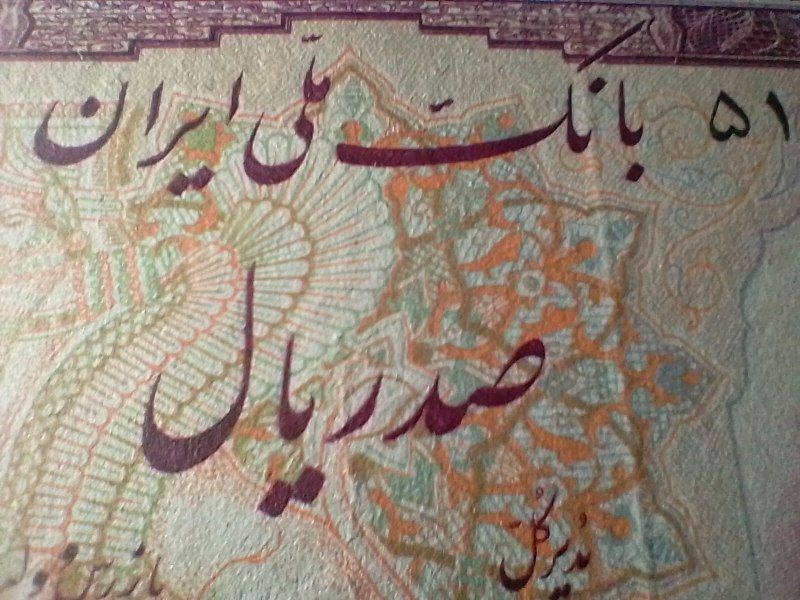 بانک ملّی ایران
۵۱
صد ریال
مدیر کل
بازرس دولت